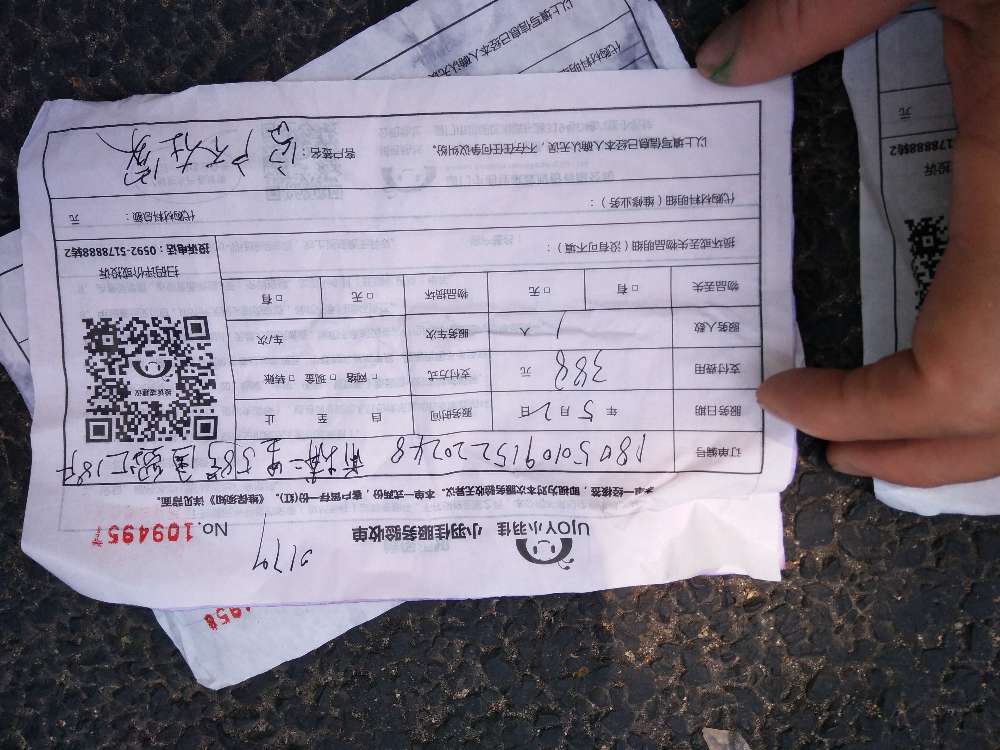 UJOY小羽佳 小羽佳服务验收单 No.109495
本单一经核签,即视为对本次服务验收无异议。本单一式两份,客户留存一份(红)。《维保须知》详见背面。
订单编号 1805010915220248 前埔二里58号
服务日期 年5月2日 服务时间 自 至 止
支付费用 388 元 支付方式 □网络 □现金 □转账
服务人数 1 人 服务车次 车/次
投诉或建议
物品丢失 □有 □无 物品损坏 □无 □有
扫码评价或投诉
损坏或丢失物品明细(没有可不填):
投诉电话:0592-5178888转2
代购材料明细(维修业务): 代购材料总额: 元
以上填写信息已经本人确认无误,不存在任何争议纠纷。 客户签名:客户不在家
以上填写信息已经本人确认无误
代购材料明
元
投诉
178888转2